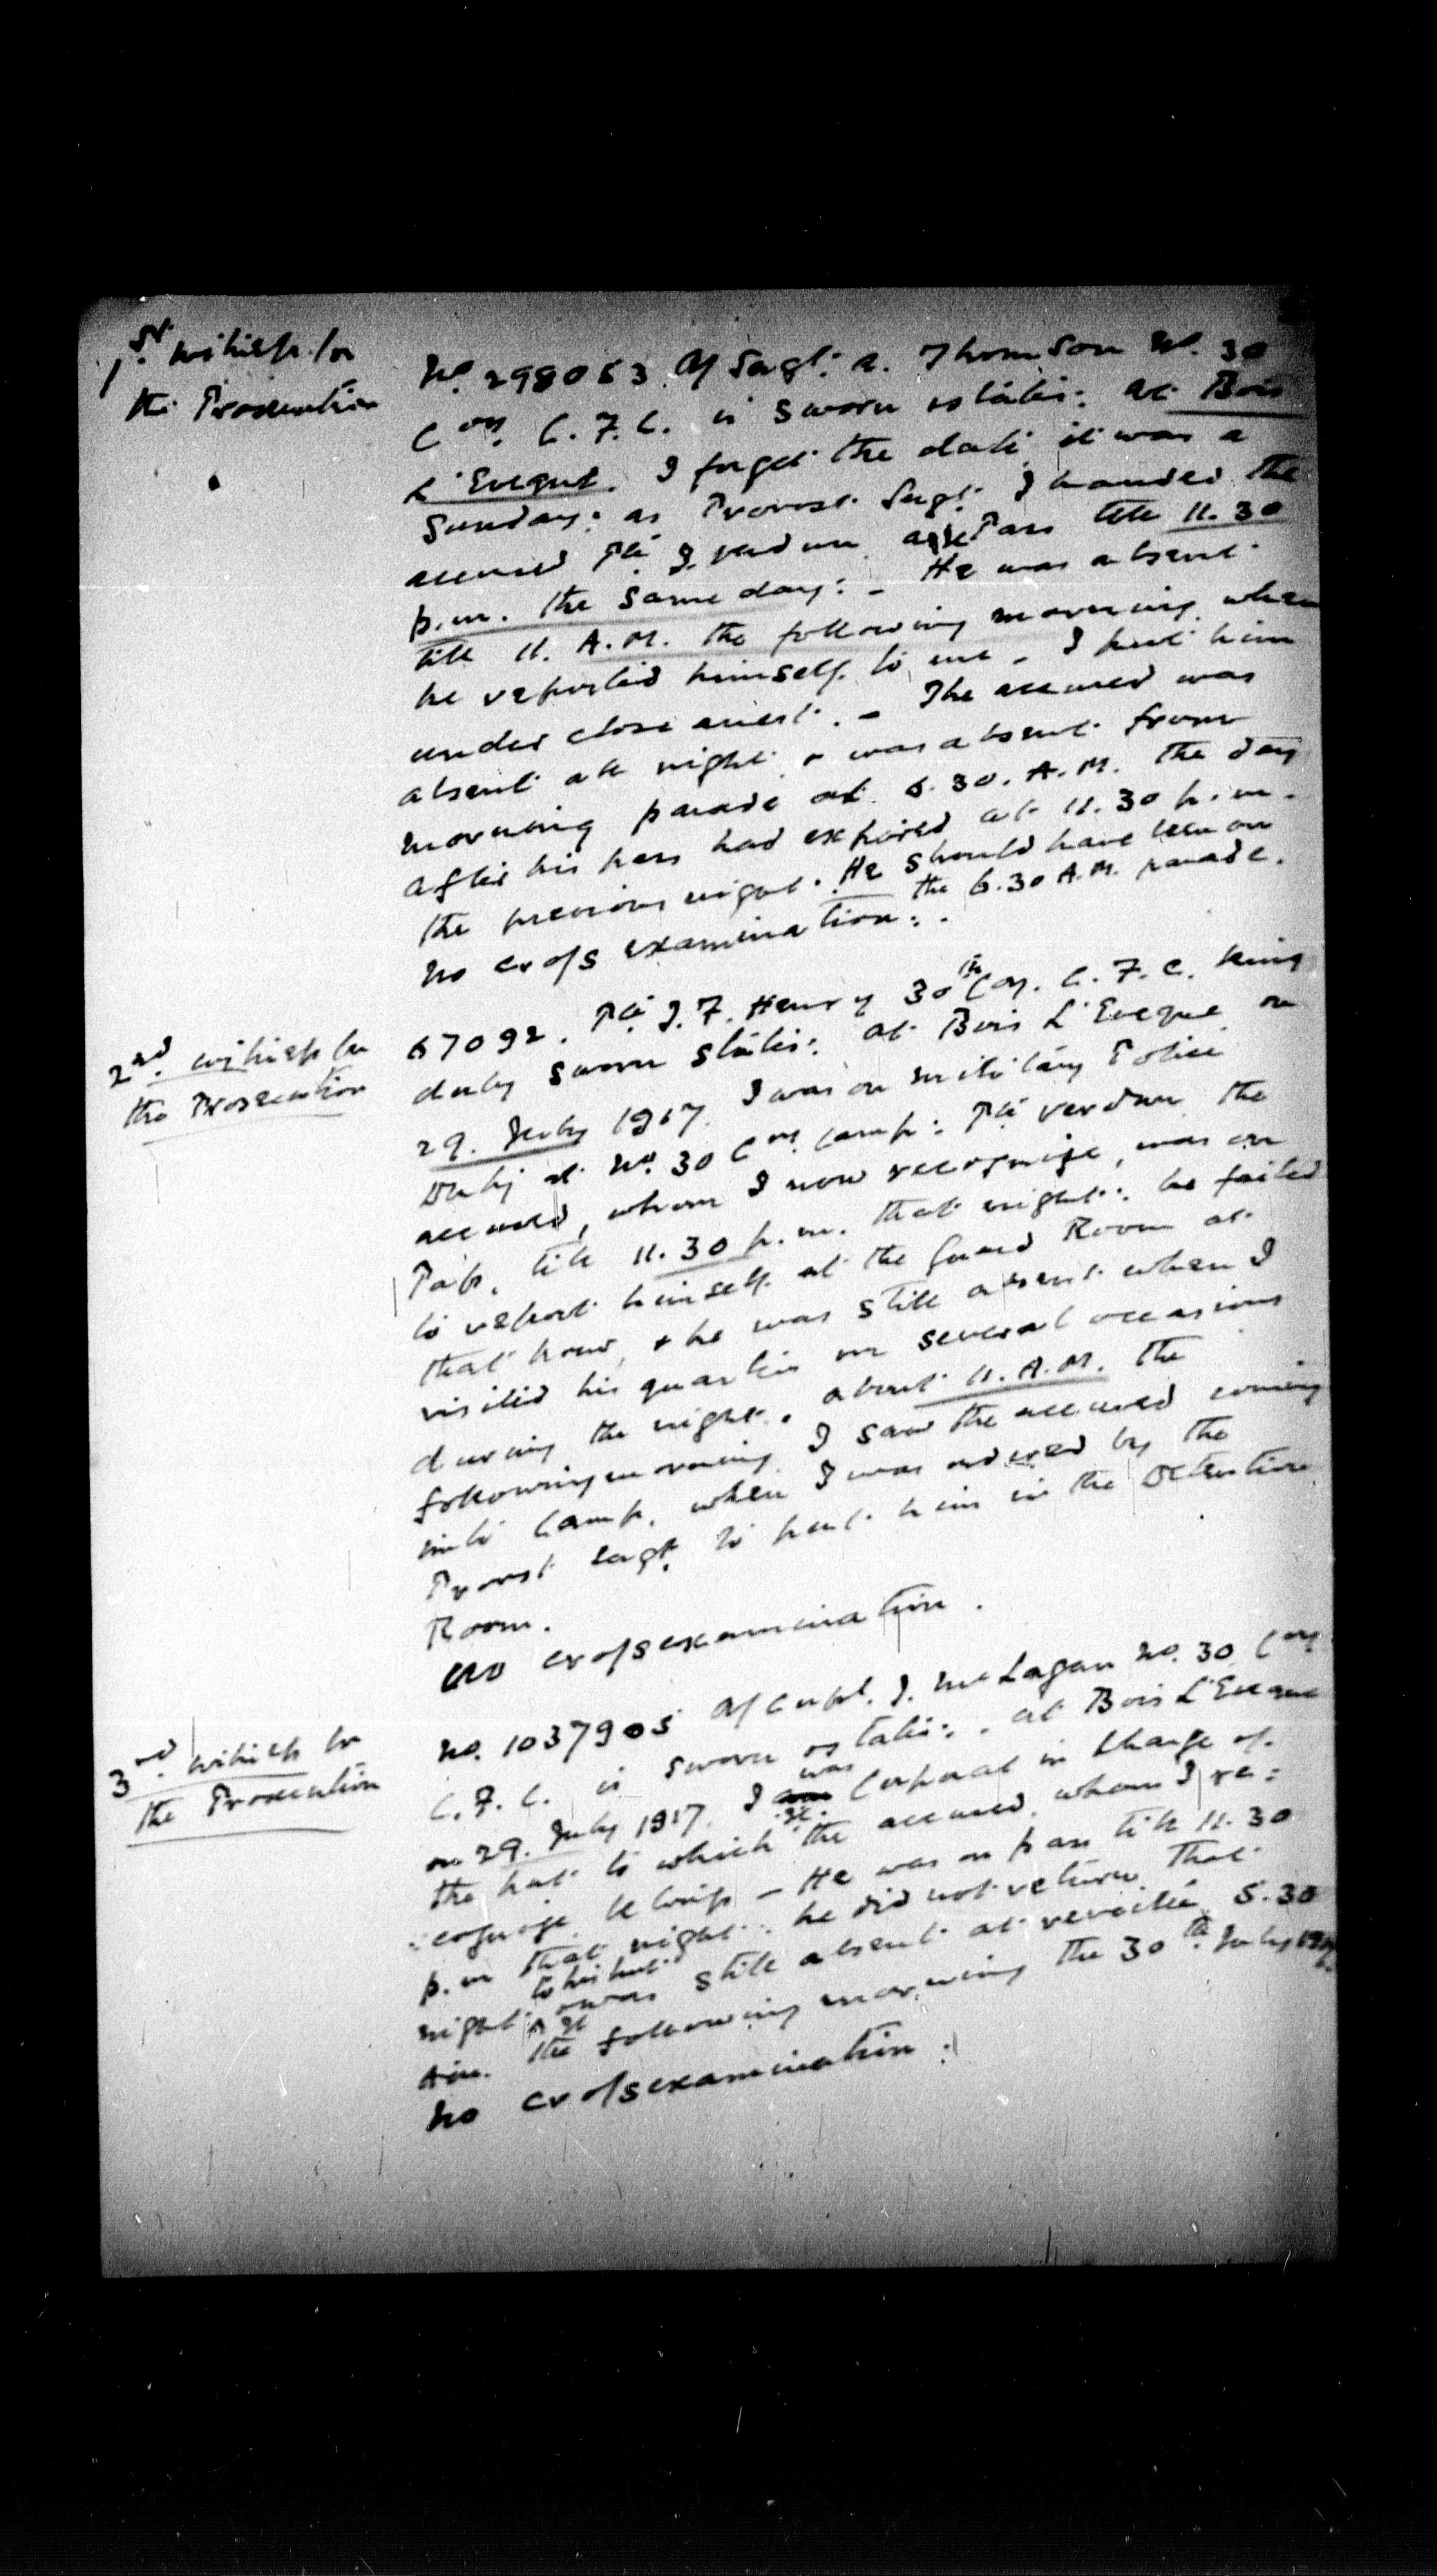 1st. witness for
the Prosecution
No. 298053 A/Sergt. A. Thomson No. 30
Coy. C.F.C. is sworn & states: at Bois
L'Eveque. I forget the date, it was a
Sunday: as Provost Sergt. I handed the
accused Pte J. Verdun a Pass till 11.30
p.m. the same day: - He was absent
till 11. A.M. the following morning when
he reported himself to me - I put him
under close arrest. - The accused was
absent all night & was absent from
morning parade at 6.30. A.M. the day
after his pass had expired at 11.30 p.m.
the previous night. He should have been on
the 6.30 A.M. parade.
No cross examination:.
2nd. witness for
the Prosecution
67092. Pte J.F. Henry 30th Coy. C.F.C. being
duly sworn states: at Bois L'Eveque on
29. July 1917. I was on Military Police
Duty at No. 30 Coy. Camp: Pte Verdun the
accused, whom I now recognize, was on
Pass, till 11.30 p.m. that night: he failed
to report himself at the Guard Room at
that hour, & he was still absent when I
visited his quarters on several occasions
during the night. about 11. A.M. the
following morning I saw the accused coming
into Camp, when I was ordered by the
Provost Sergt. to put him in the Detention
Room.
No cross examination.
3rd. witness for
the Prosecution
No. 1037905 A/Corpl. J. McLagan No. 30 Coy
C.F.C. is sworn & states:. at Bois L'Eveque
on 29. July 1917. I was Corporal in charge of
the hut to which the accused, whom I re:
:cognize, belongs - He was on pass till 11.30
p.m that night: he did not return that
night to his hut & was still absent at reveillé 5.30
A.m. the following morning the 30th July 1917.
No cross examination: